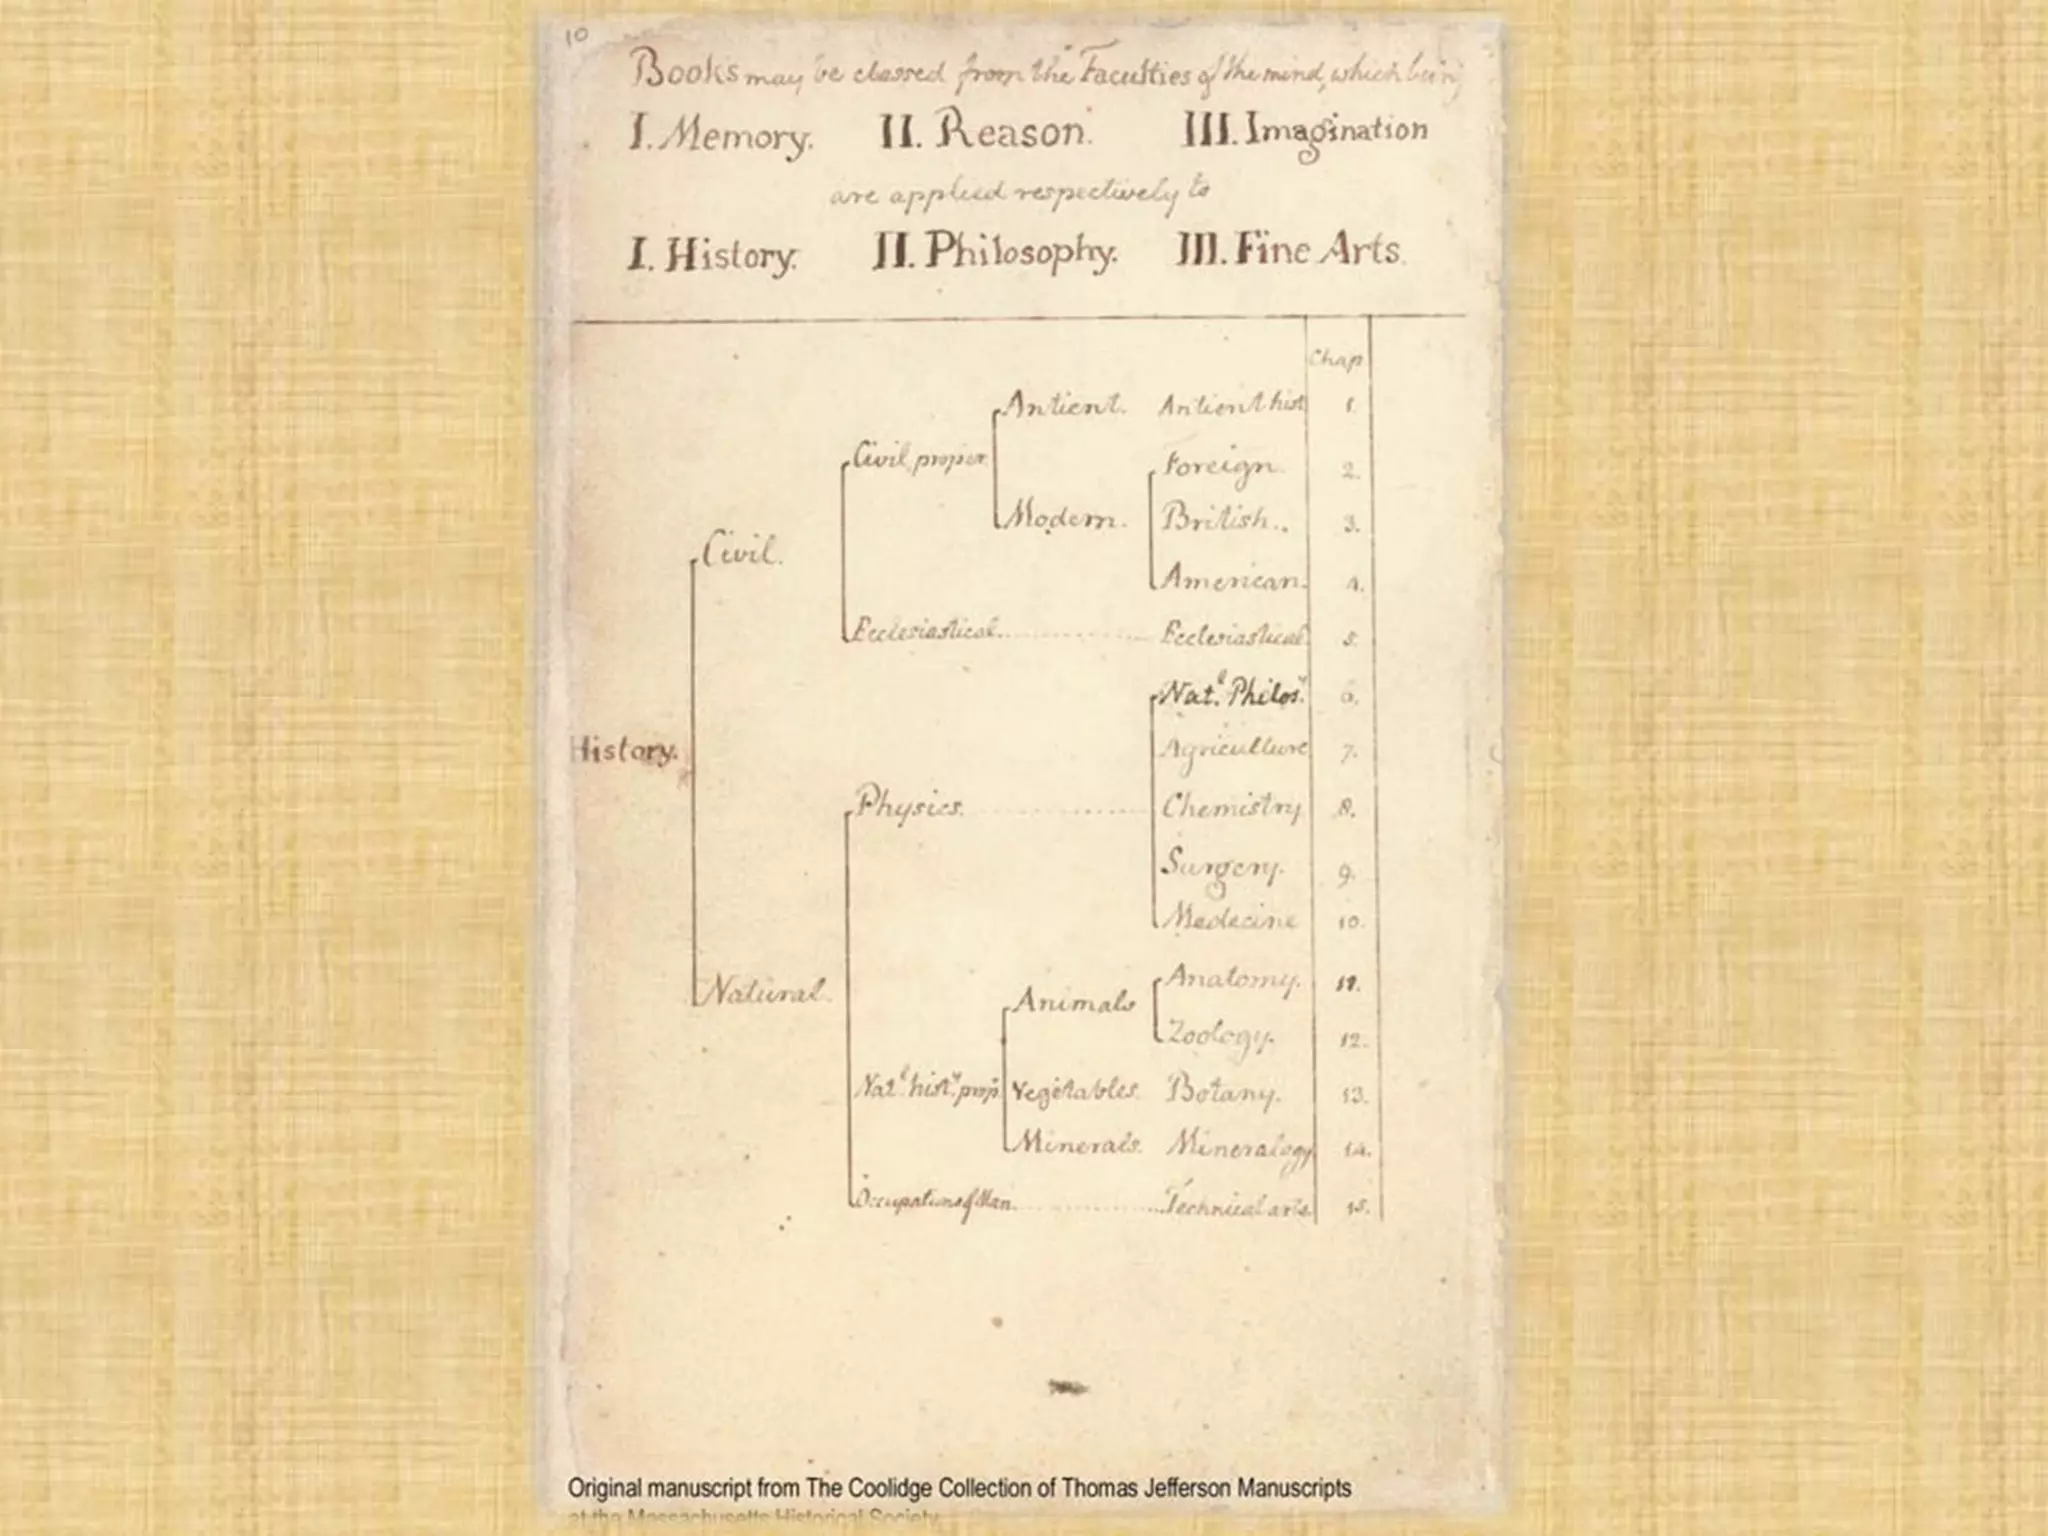 10
Books may be classed from the Faculties of the mind, which being
I. Memory. II. Reason. III. Imagination
are applied respectively to
I. History. II. Philosophy. III. Fine Arts.
Chap
Antient. Antient hist 1.
Civil proper
Foreign. 2.
Modern. British. 3.
Civil.
American. 4.
Ecclesiastical. Ecclesiastical 5.
Natl. Philosy. 6.
History. Agriculture 7.
Physics. Chemistry 8.
Surgery. 9.
Medecine 10.
Natural. Anatomy. 11.
Animals
Zoology. 12.
Natl. histy. prop. Vegetables. Botany. 13.
Minerals. Mineralogy 14.
Occupations of Man. Technical arts. 15.
Original manuscript from The Coolidge Collection of Thomas Jefferson Manuscripts
at the Massachusetts Historical Society